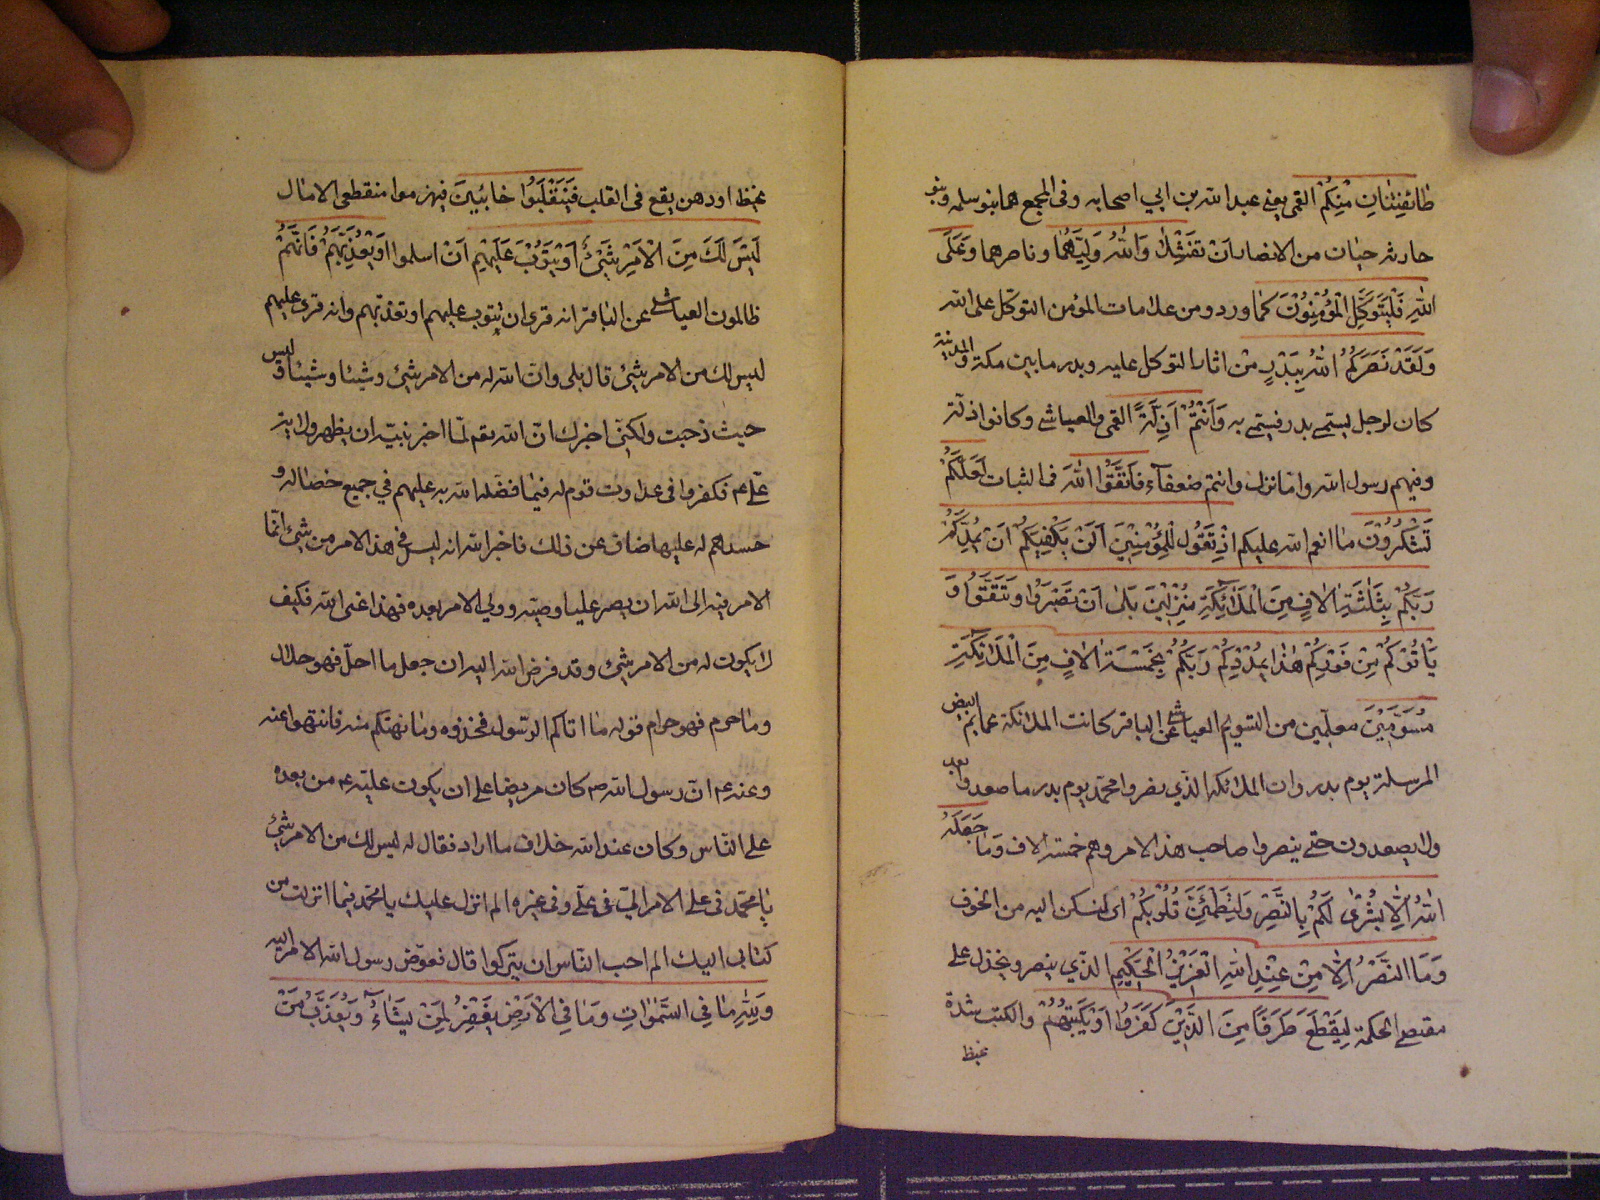 طائفتان منكم القمی یعنی عبد الله بن ابی اصحابه وفی المجمع هما بنو سلمه وبنو
حارثه حیان من الانصار ان تفشلا والله ولیهما وناصرهما وعلی
الله فلیتوکل المؤمنون کما ورد ومن علامات المؤمن التوکل علی الله
ولقد نصرکم الله ببدر من اثار التوکل علیه وبدر ما بین مکة والمدینة
کان لرجل یسمی بدر فیسمی به وانتم اذلة القمی والعیاشی وکانوا اذلة
وفیهم رسول الله وانما نزل وانتم ضعفاء فاتقوا الله فی الثبات لعلکم
تشکرون ما انعم الله علیکم اذ تقول للمؤمنین الن یکفیکم ان یمدکم
ربکم بثلثة الاف من الملائکة منزلین بلی ان تصبروا وتتقوا و
یاتوکم من فورکم هذا یمددکم ربکم بخمسة الاف من الملائکة
مسومین معلمین من التسویم العیاشی عن الباقر کانت الملائکة عمایم البیض
المرسلة یوم بدر وان الملائکة الذی نصروا محمد یوم بدر ما صعدوا بعد
ولا یصعدون حتی ینصروا صاحب هذا الامر وهم خمسة الاف وما جعله
الله الا بشری لکم بالنصر ولتطمئن قلوبکم ای لتسکن الیه من الخوف
وما النصر الا من عند الله العزیز الحکیم الذی ینصر ویخذل علی
مقتضی الحکمة لیقطع طرفا من الذین کفروا او یکبتهم والکبت شدة
غیظ
غیظ او وهن یقع فی القلب فینقلبوا خائبین فینهزموا منقطعی الامال
لیس لک من الامر شیئ او یتوب علیهم ان اسلموا او یعذبهم فانهم
ظالمون العیاشی عن الباقر انه قری ان یتوب علیهم او تعذبهم وانه قری علیهم
لیس لک من الامر شیئ قال بلی وان الله له من الامر شیئ وشیئا وشیئا ولیس
حیث ذهبت ولکنی اخبرک ان الله تعم لما اخبر نبیه ان یظهر ولایة
علی عم فکفروا فی عداوت قوم له فیما فضله الله به علیهم فی جمیع خصاله و
حسدهم له علیها ضاق عن ذلک فاخبر الله انه لیس فی هذا الامر من شیئ انما
الامر فیه الی الله ان یصیر علیا وصیه وولی الامر بعده فهذا عنی الله فکیف
لا یکون له من الامر شیئ وقد فرض الله الیه ان جعل ما احل فهو حلال
وما حرم فهو حرام قوله ما اتاکم الرسول فخذوه وما نهیکم عنه فانتهوا عنه
وعنه عم ان رسول الله ص کان حریصا علی ان یکون علی عم من بعده
علی الناس وکان عند الله خلاف ما اراد فقال له لیس لک من الامر شیئ
یا محمد فی علی الامر الی فی علی وفی غیره الم انزل علیک یا محمد فیما انزلت من
کتابی الیک الم احسب الناس ان یترکوا قال ففوض رسول الله الامر الیه
ولله ما فی السموات وما فی الارض یغفر لمن یشاء ویعذب من